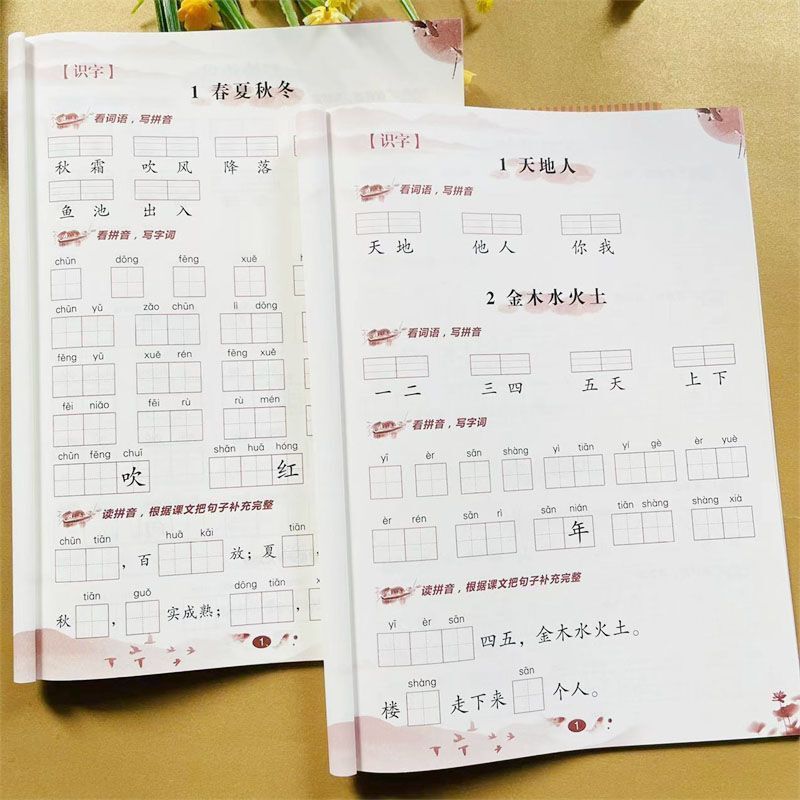 【识字】
1 春夏秋冬
看词语，写拼音
秋 霜 吹 风 降 落
鱼 池 出 入
看拼音，写字词
chūn dōng fēng xuě
chūn yǔ zǎo chūn lì dōng
fēng yǔ xuě rén fēng xuě
fēi niǎo fēi rù rù mén
chūn fēng chuī shān huā hóng
吹 红
读拼音，根据课文把句子补充完整
chūn tiān huā kāi tiān
，百 放；夏 ，
tiān guǒ dōng tiān
秋 ， 实成熟； ，
1
【识字】
1 天地人
看词语，写拼音
天 地 他 人 你 我
2 金木水火土
看词语，写拼音
一 二 三 四 五 天 上 下
看拼音，写字词
yī èr sān shàng yì tiān yí gè èr yuè
èr rén sān rì sān nián tiān shàng shàng xià
年
读拼音，根据课文把句子补充完整
yī èr sān
四五，金木水火土。
shàng sān
楼 走下来 个人。
1